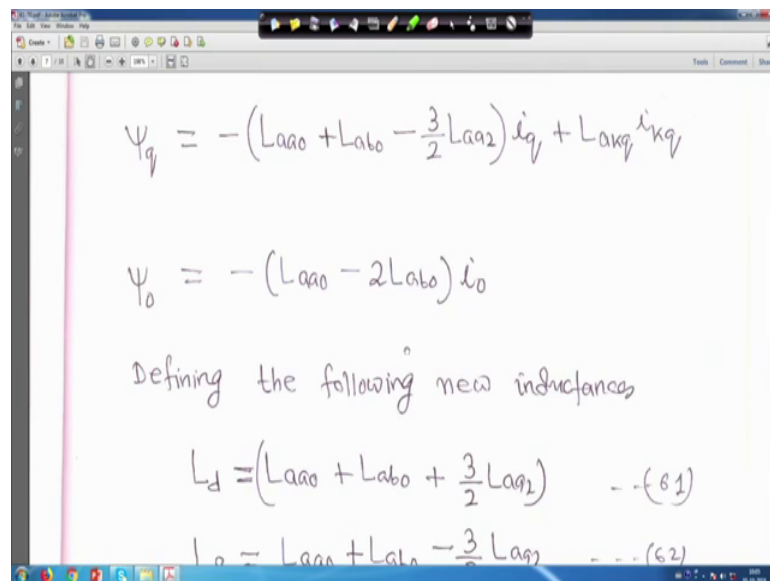 81-70.pdf - Adobe Acrobat Pro
File Edit View Window Help
Create
7 / 10
Tools Comment
Ψq = -(Laa0 + Lab0 - 3/2 Laa2) iq + Lakq ikq
Ψ0 = -(Laa0 - 2Lab0) i0
Defining the following new inductances
Ld = (Laa0 + Lab0 + 3/2 Laa2) ---(61)
Laa0 + Lab0 - 3/2 Laa2 ---(62)